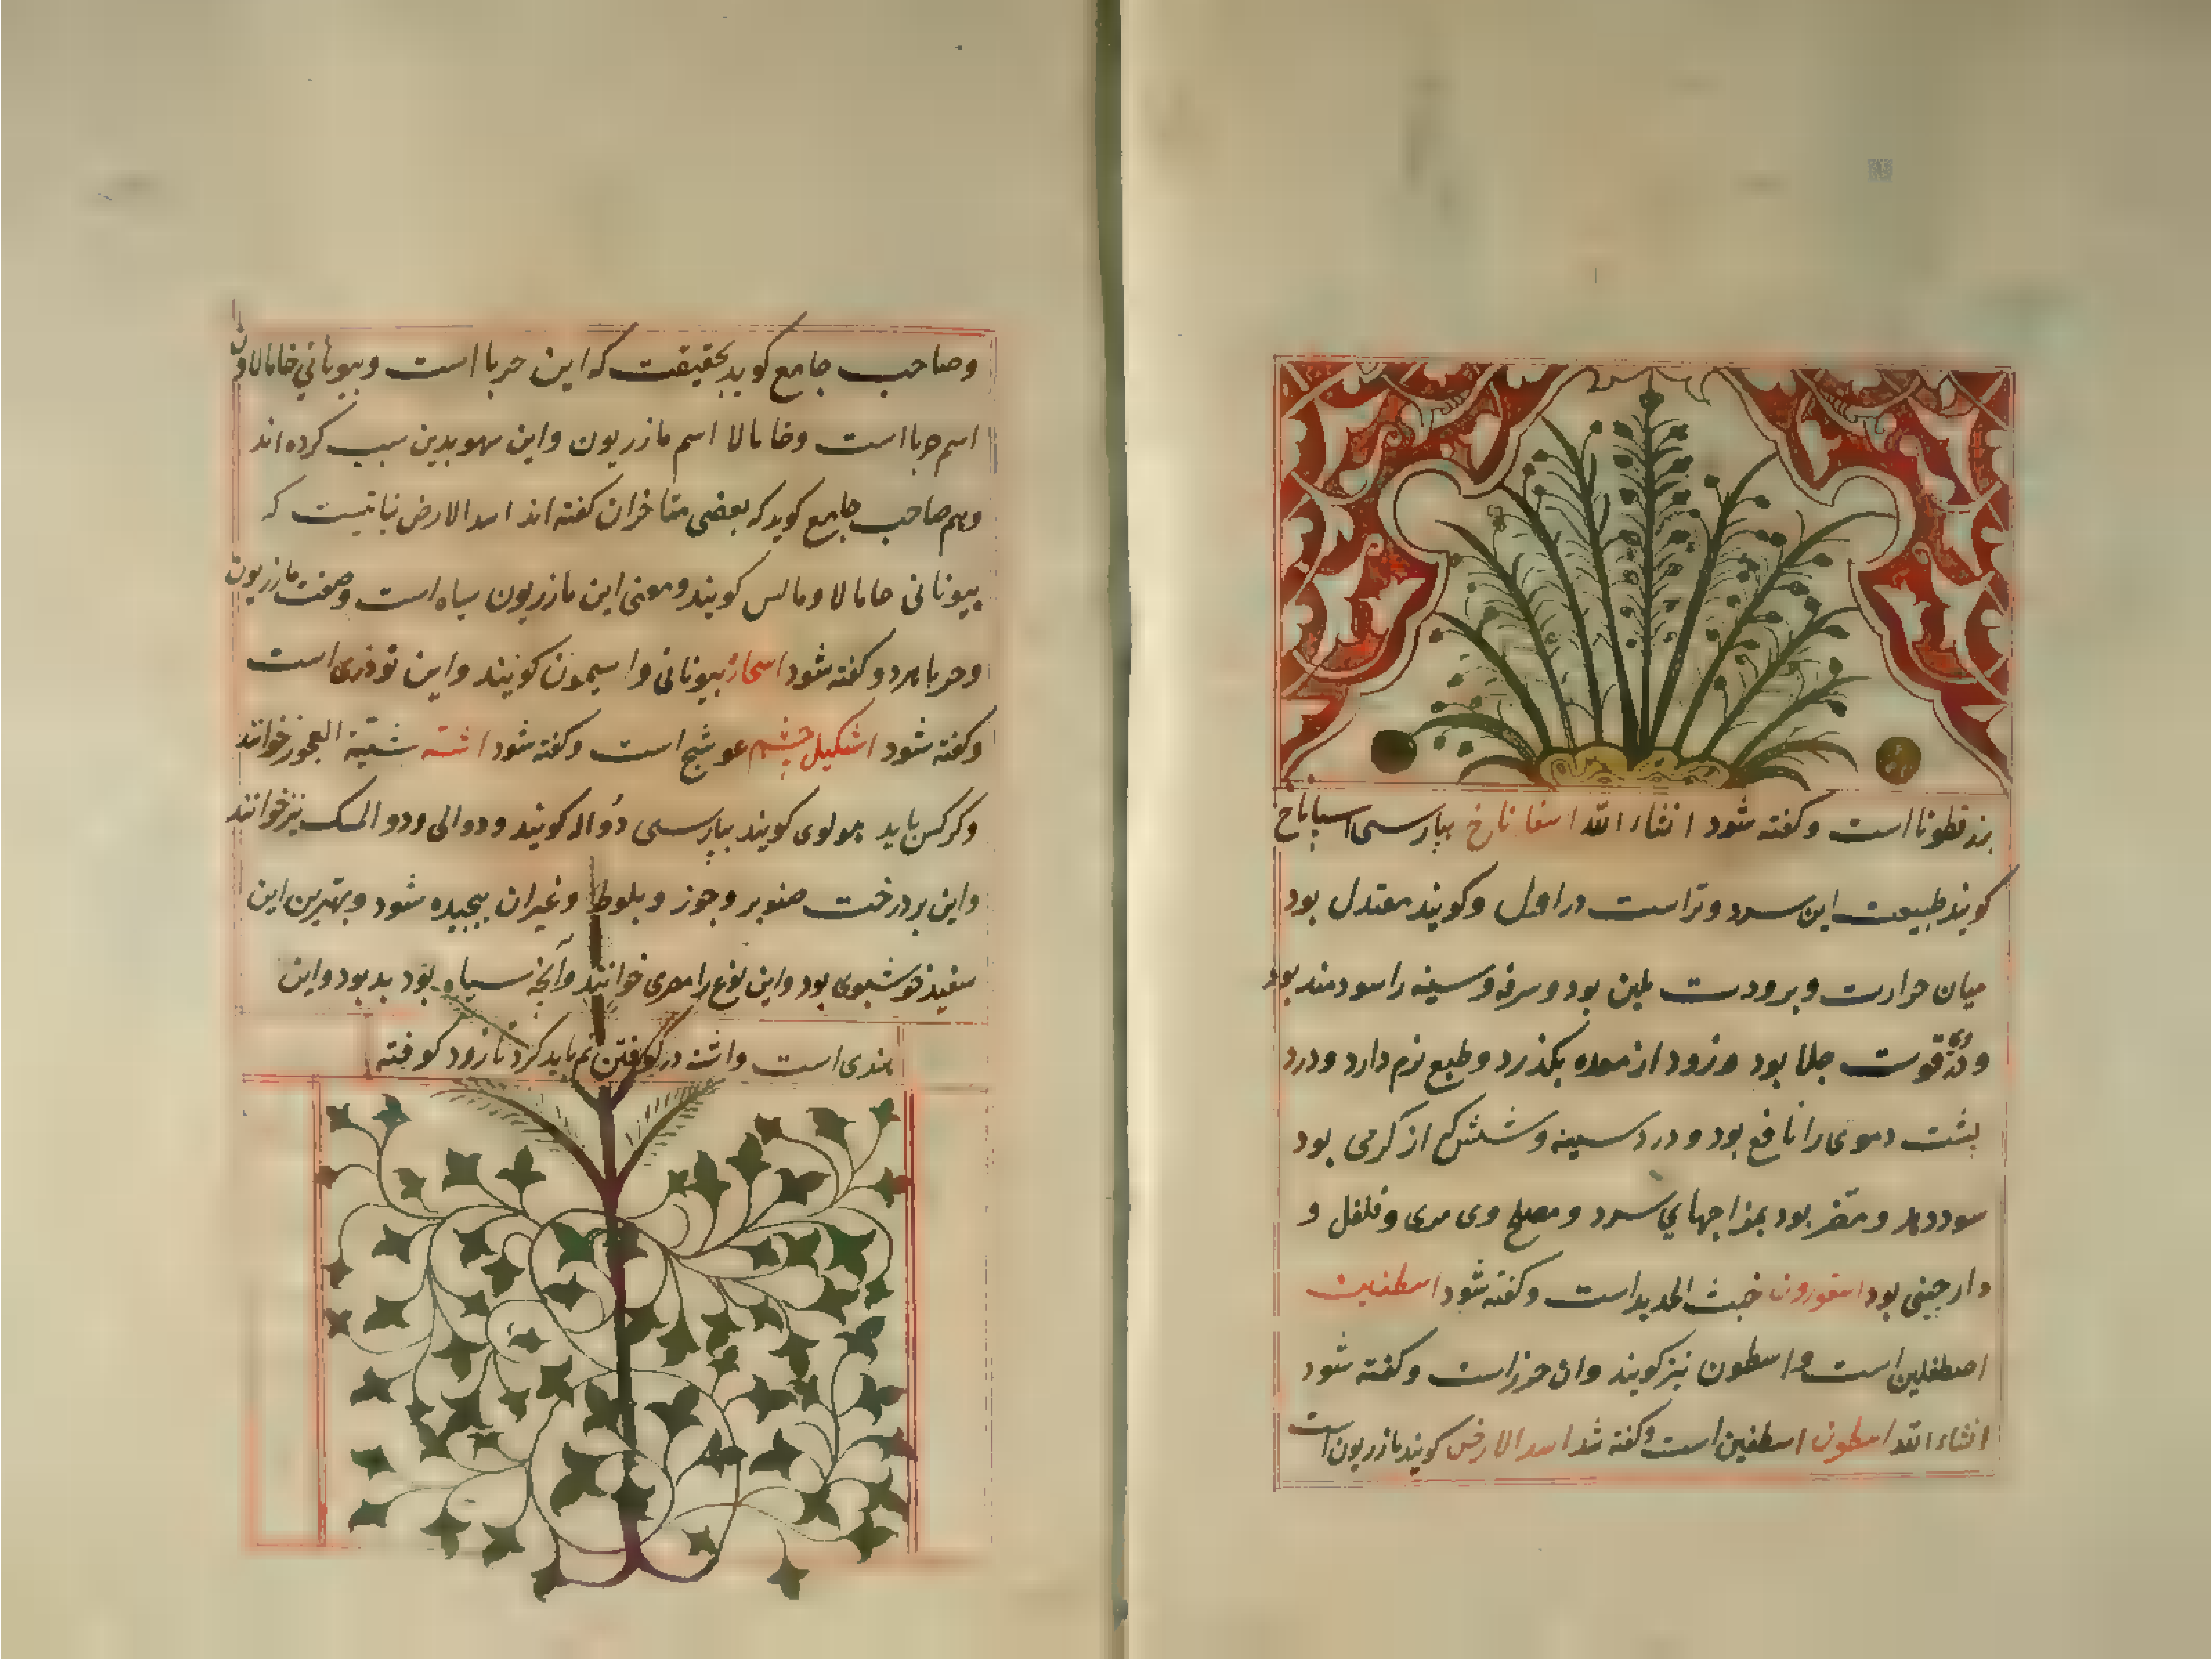 بزرقطونا است و کفته شود انشاء الله اسفاناخ بپارسی اسپاناخ
کویند طبیعت این سرد و تر است در اول و کویند معتدل بود
میان حرارت و برودت ملین بود و سرفه و سینه را سودمند بود
و در وی قوت جلا بود و زود از معده بکذرد و طبع نرم دارد و درد
پشت دموی را نافع بود و درد سینه و شش که از کرمی بود
سود دهد و مضر بود بمزاجهای سرد و مصلح وی مری و فلفل و
دارچینی بود اسقورون خبث الحدید است و کفته شود اسطفلین
اصطفلین است و اسطون نیز کویند و ان جزر است و کفته شود
انشاء الله اسطون اسطفین است و کفته شد اسد الارض کویند مازریون است
و صاحب جامع کوید بحقیقت که این حربا است و بیونانی خامالاون
اسم حربا است و خامالا اسم مازریون و این سهو بدین سبب کرده اند
و هم صاحب جامع کوید که بعضی متاخران کفته اند اسد الارض نباتیست که
بیونانی خامالا ومالس کویند و معنی این مازریون سیاه است و صفت مازریون
و حربا هر دو کفته شود اسحار بیونانی وا سیمون کویند و این تودری است
و کفته شود اشکیل چشم عوشج است و کفته شود اشنه شیبة العجوز خوانند
و کرکس باید بهولوی کویند بپارسی دواله کویند و دوالی و دوالمسک نیز خوانند
و این بر درخت صنوبر و جوز و بلوط و غیر ان پیچیده شود و بهترین این
سفید خوشبوی بود و این نوع را مصری خوانند و آنچه سیاه بود بد بود و این
هندی است و اشنه در کوفتن نم باید کرد تا زود کوفته